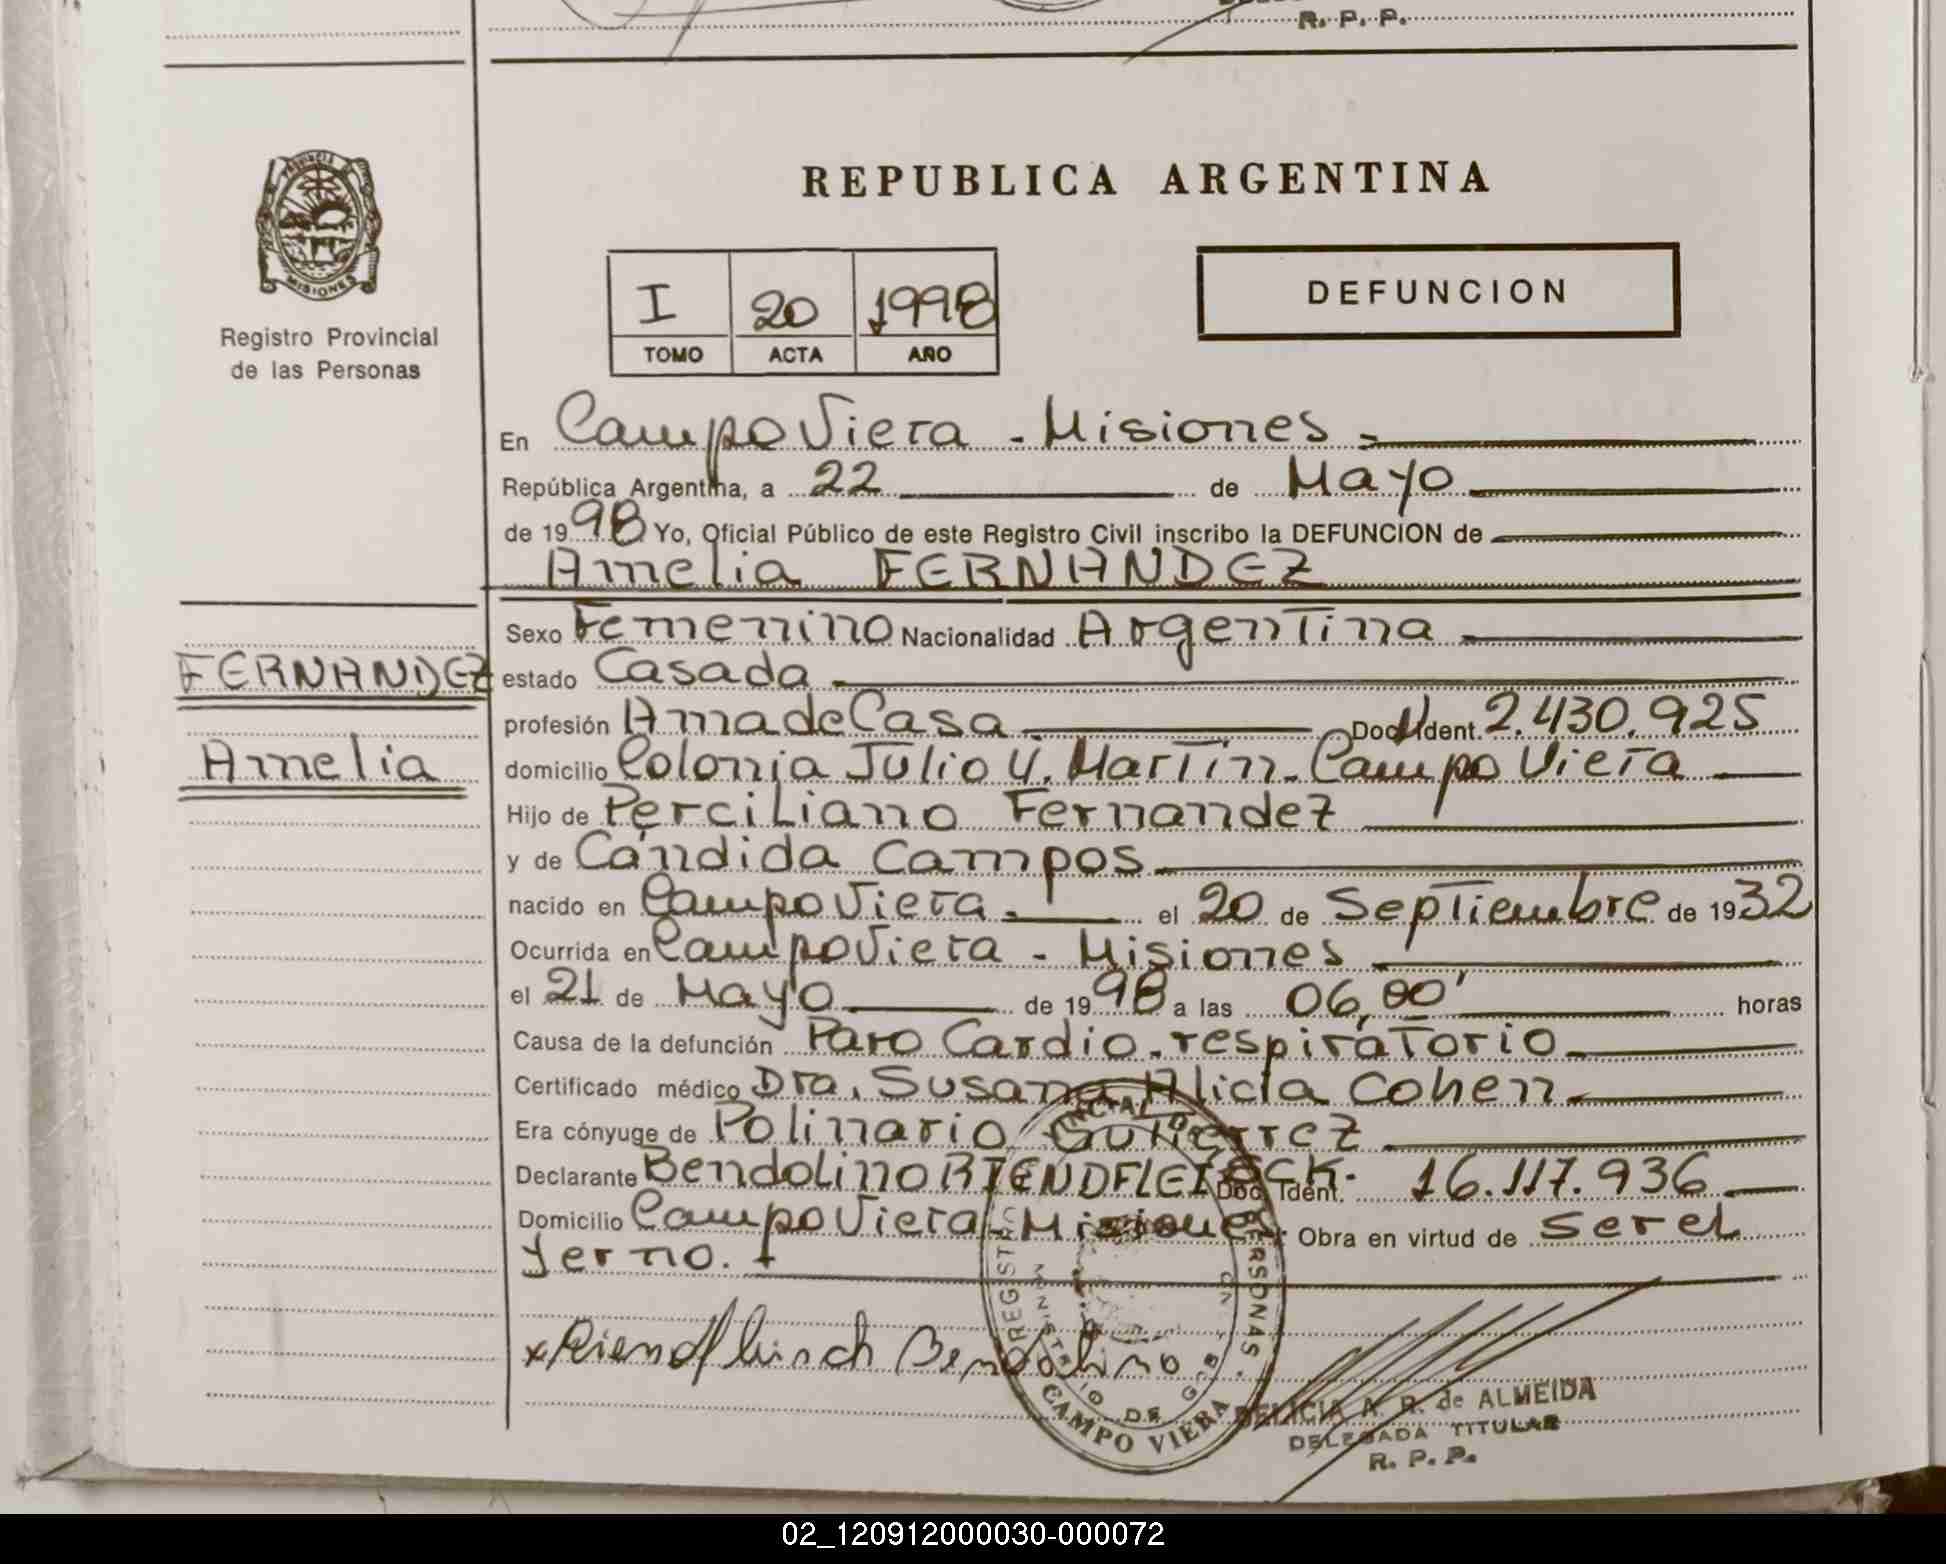 R. P. P.
PROVINCIA DE
MISIONES
Registro Provincial
de las Personas
REPUBLICA ARGENTINA
I 20 1998
TOMO ACTA AÑO
DEFUNCION
En Campo Viera - Misiones =
República Argentina, a 22 de Mayo
de 1998 Yo, Oficial Público de este Registro Civil inscribo la DEFUNCION de
Amelia FERNANDEZ
Sexo Femenino Nacionalidad Argentina
FERNANDEZ
estado Casada
profesión Ama de Casa Doc. Ident. 2.430.925
Amelia
domicilio Colonia Julio U. Martin - Campo Viera
Hijo de Perciliano Fernandez
y de Cándida Campos
nacido en Campo Viera el 20 de Septiembre de 1932
Ocurrida en Campo Viera - Misiones
el 21 de Mayo de 1998 a las 06,00' horas
Causa de la defunción Paro Cardio-respiratorio
Certificado médico Dra. Susana Alicia Cohen
Era cónyuge de Polinario Gutierrez
Declarante Bendolino RIENDFLEISCK. Doc. Ident. 16.117.936
Domicilio Campo Viera - Misiones. Obra en virtud de ser el
Yerno.
x Riendfleisch Bendolino
REGISTRO PERSONAS.
MINISTERIO DE GOB
CAMPO VIERA
DELICIA A. R. de ALMEIDA
DELEGADA TITULAR
R. P. P.
02_120912000030-000072